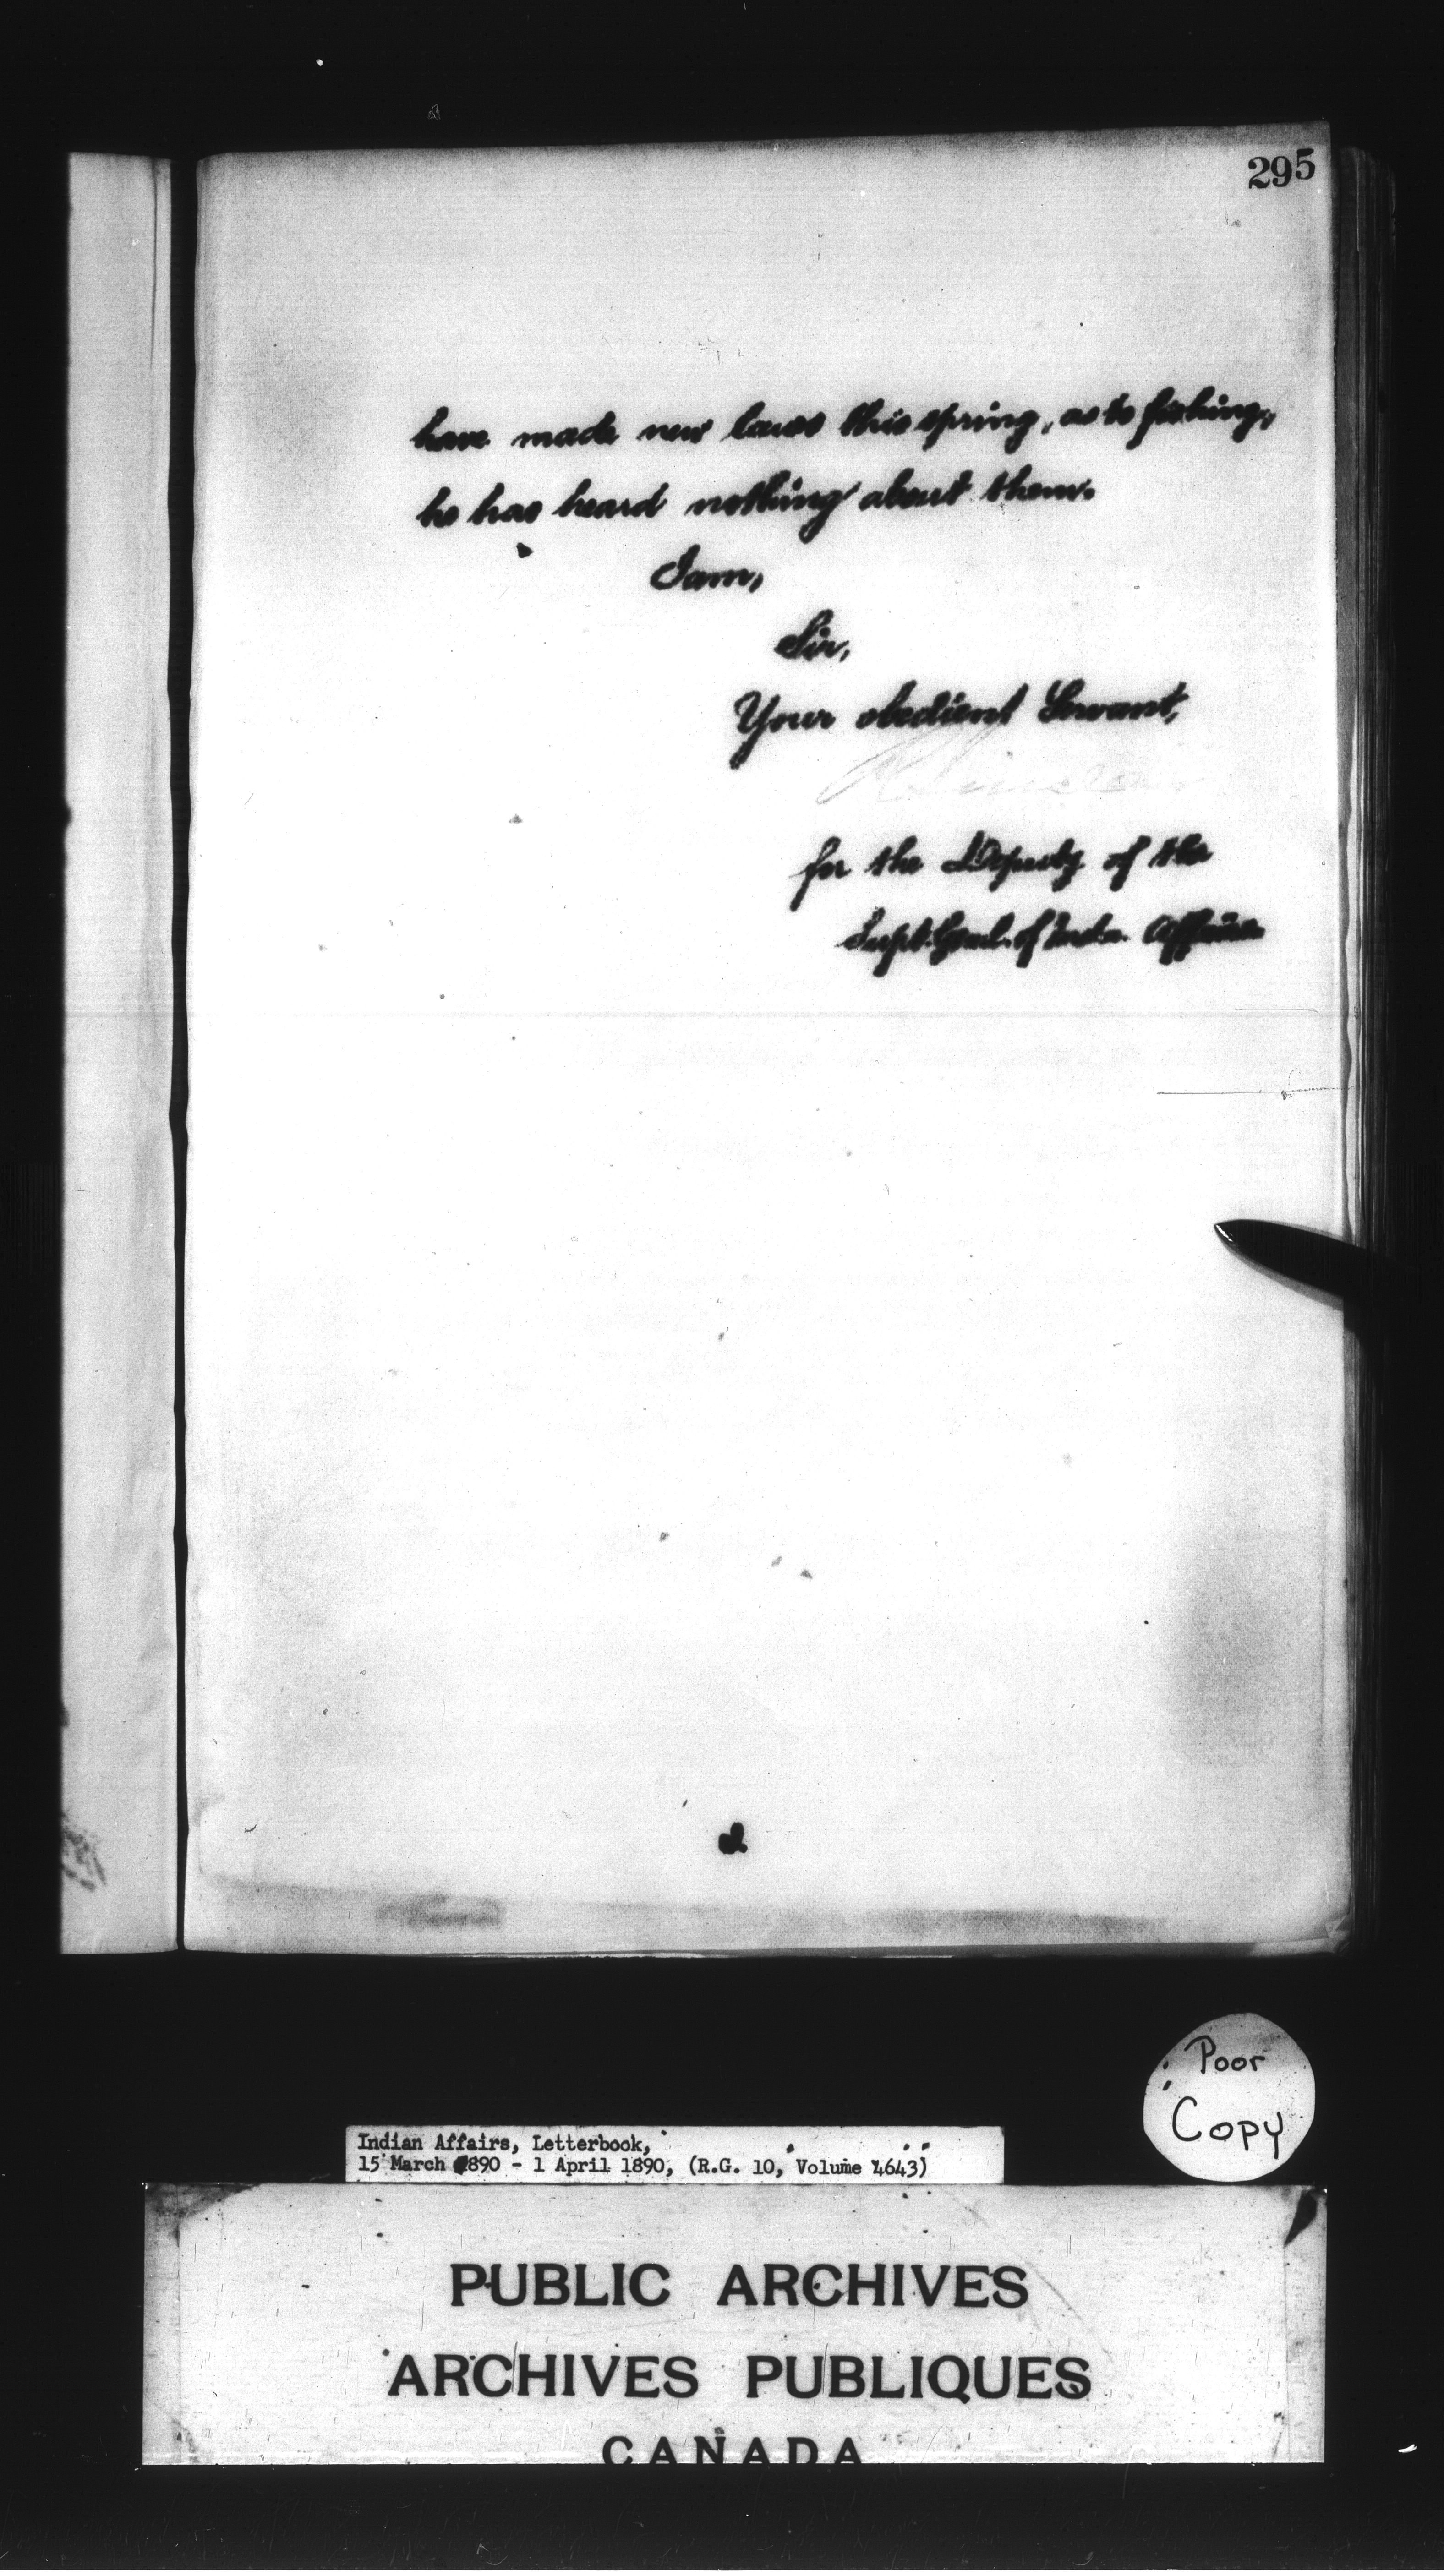 295
have made new laws this spring, as to fishing,
he has heard nothing about them.
I am,
Sir,
Your obedient Servant,
for the Deputy of the
Supt. Genl. of Indn. Affairs
Poor
Copy
Indian Affairs, Letterbook,
15 March 1890 - 1 April 1890, (R.G. 10, Volume 4643)
PUBLIC ARCHIVES
ARCHIVES PUBLIQUES
CANADA